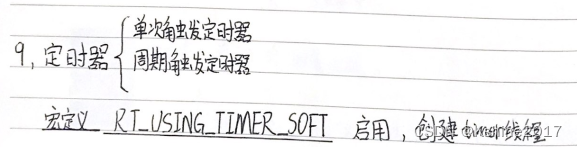 9, 定时器
单次触发定时器
周期触发定时器
宏定义 RT_USING_TIMER_SOFT 启用, 创建timer线程